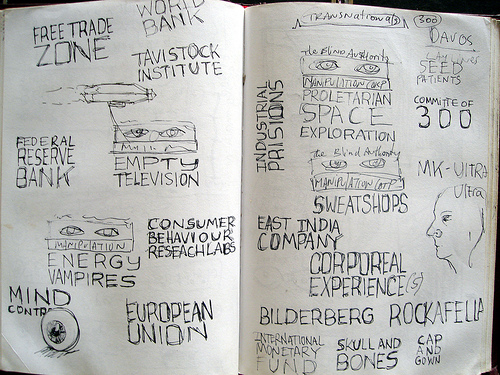 FREE TRADE
ZONE
WORLD
BANK
TAVISTOCK
INSTITUTE
FEDERAL
RESERVE
BANK
EMPTY
TELEVISION
MANIPULATION
ENERGY
VAMPIRES
CONSUMER
BEHAVIOUR
RESEACH LABS
MIND
CONTROL
EUROPEAN
UNION
TRANSNATIONAL(S) (300)
DAVOS
The Blind Authority
MANIPULATION CORP
PROLETARIAN
SPACE
EXPLORATION
INDUSTRIAL
PRISIONS
SEED
PATIENTS
COMMITE OF
300
The Blind Authority
MANIPULATION CORP
SWEATSHOPS
MK-ULTRA
Ultra
EAST INDIA
COMPANY
CORPOREAL
EXPERIENCE(S)
BILDERBERG ROCKAFELLA
INTERNATIONAL
MONETARY
FUND
SKULL AND
BONES
CAP
AND
GOWN